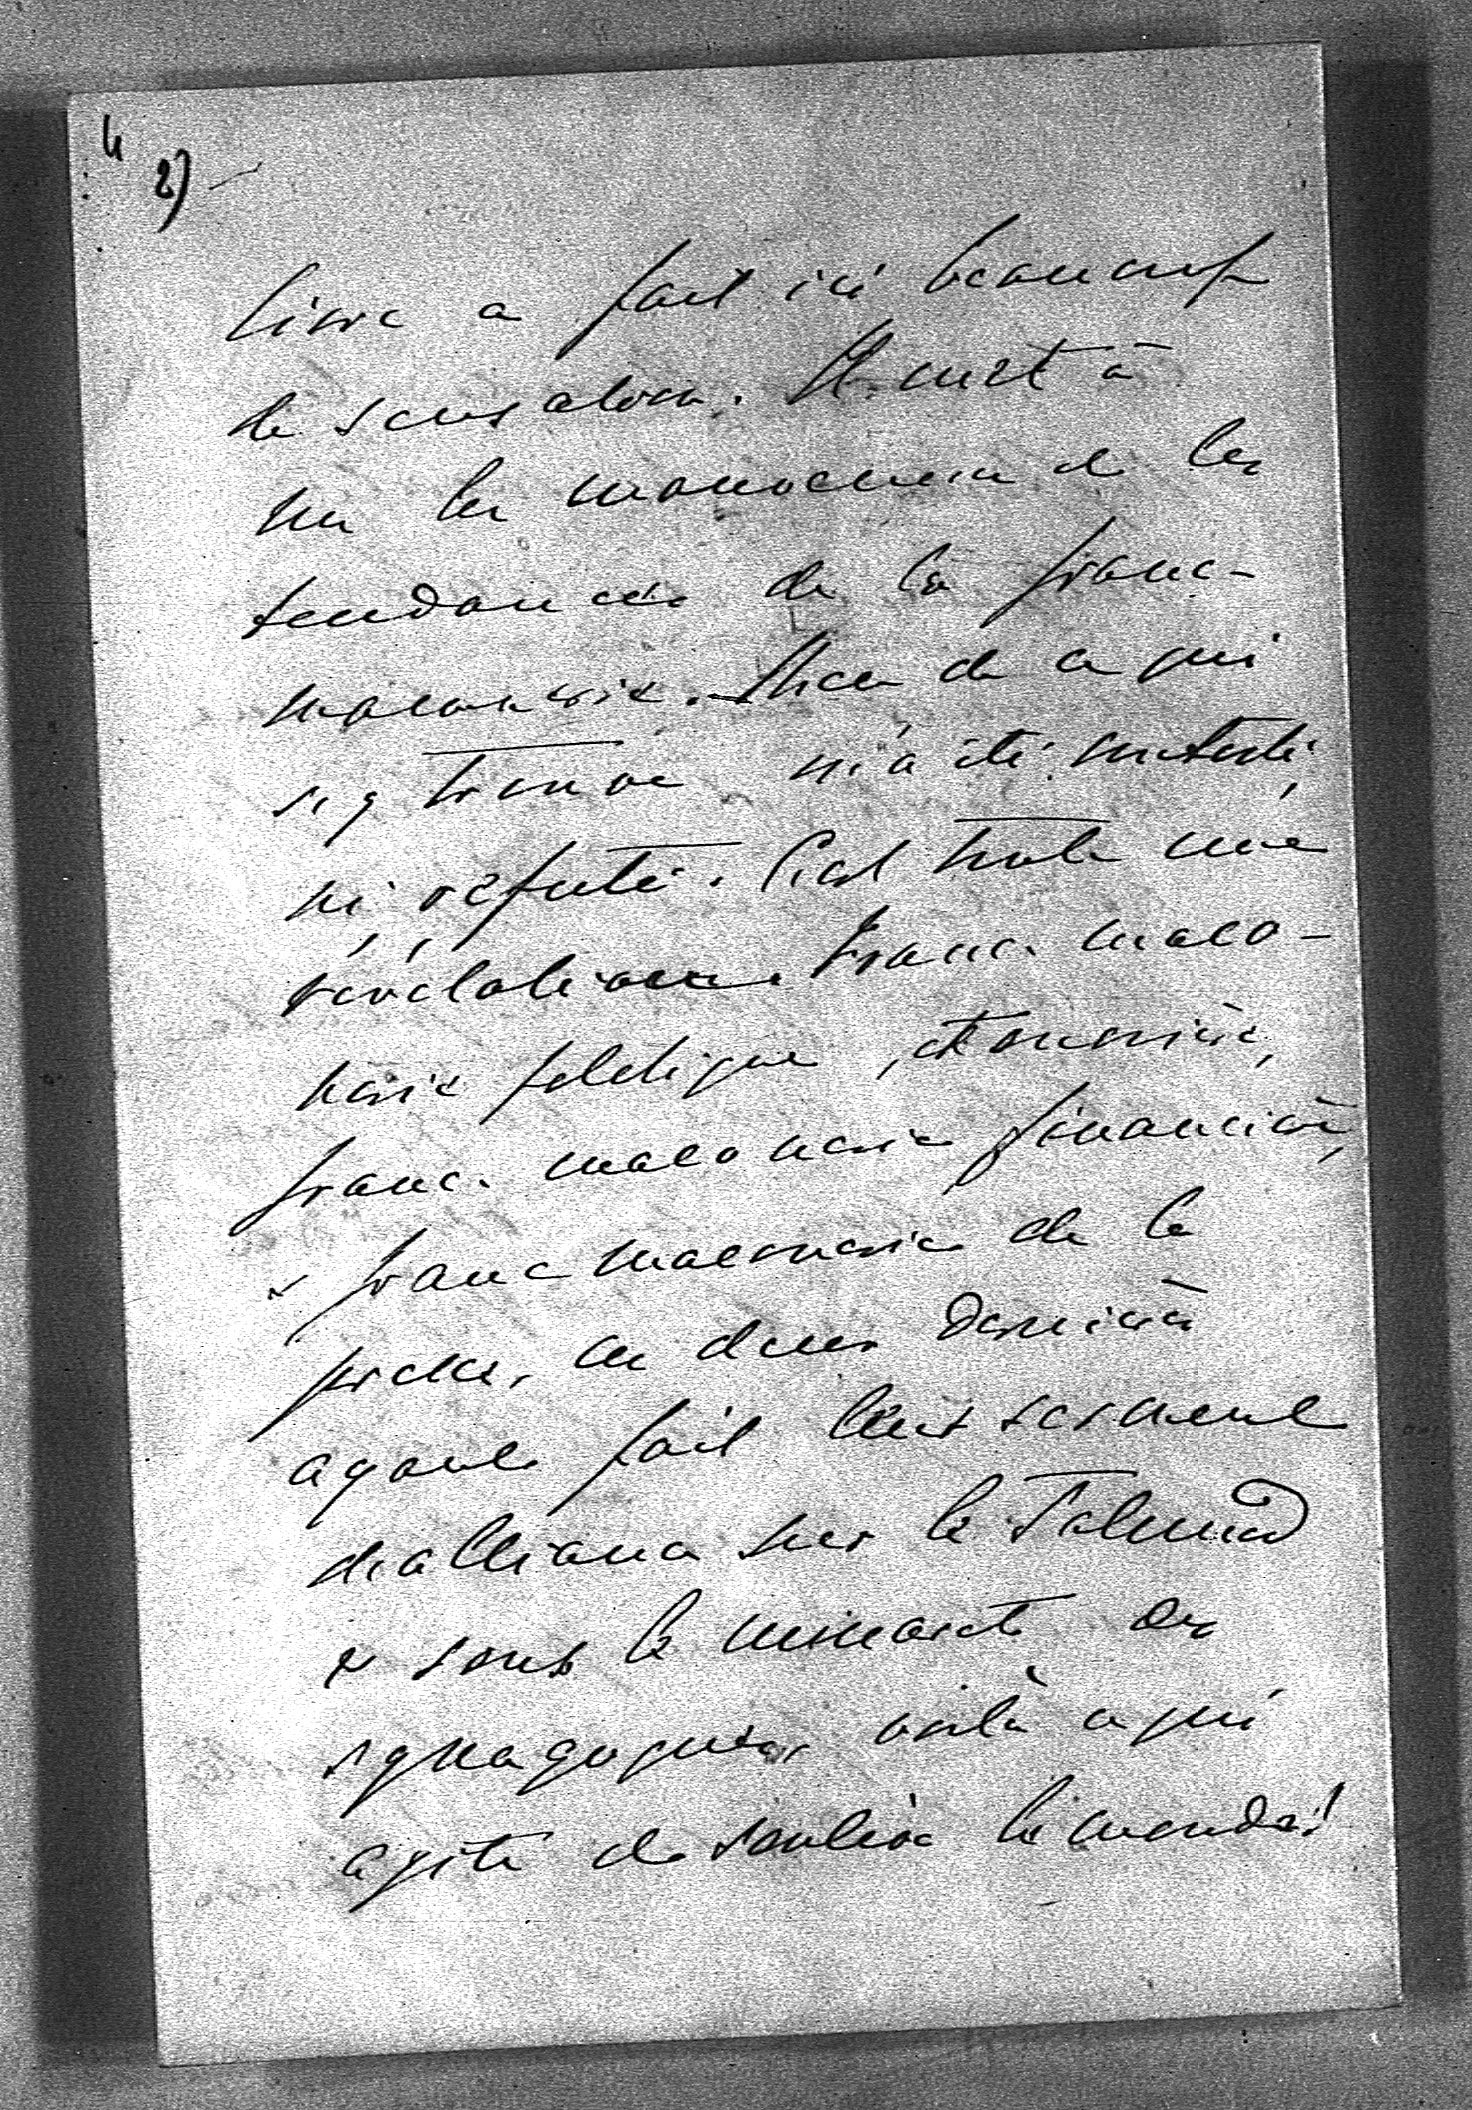 4
2) —
livre a fait ici beaucoup
de sensation. Il met à
nu les manoeuvres et les
tendances de la franc-
maconnerie. Rien de ce qui
s'y trouve n'a été contesté,
ni réfuté. C'est toute une
révélation. Franc-maco-
nerie politique,
franc-maconerie financière,
& franc maconerie de la
presse, ces deux dernières
ayant fait leur serment
d'alliance sur le Talmud
& sous le minarets des
synagogues, voilà ce qui
agite et soulève le monde!